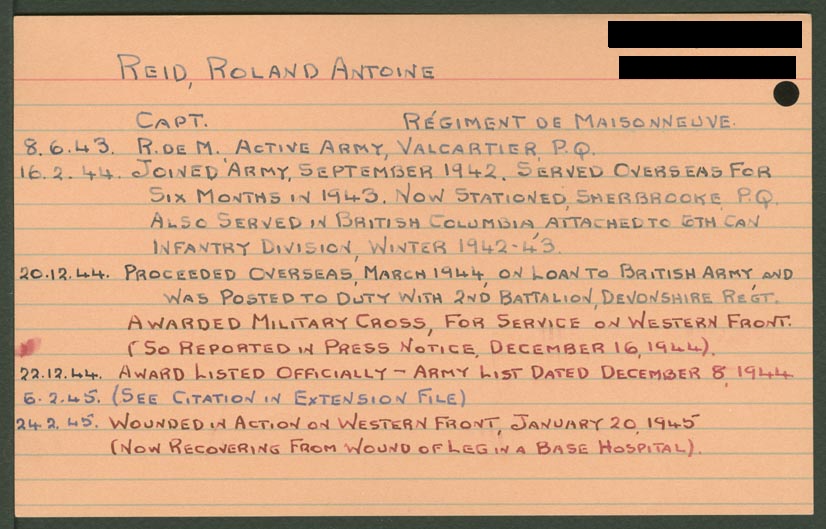 REID, ROLAND ANTOINE
CAPT. RÉGIMENT DE MAISONNEUVE.
8.6.43. R. DE M. ACTIVE ARMY, VALCARTIER, P.Q.
16.2.44. JOINED ARMY, SEPTEMBER 1942. SERVED OVERSEAS FOR
SIX MONTHS IN 1943. NOW STATIONED, SHERBROOKE, P.Q.
ALSO SERVED IN BRITISH COLUMBIA, ATTACHED TO 6TH CAN
INFANTRY DIVISION, WINTER 1942-43.
20.12.44. PROCEEDED OVERSEAS, MARCH 1944, ON LOAN TO BRITISH ARMY AND
WAS POSTED TO DUTY WITH 2ND BATTALION, DEVONSHIRE REGT.
AWARDED MILITARY CROSS, FOR SERVICE ON WESTERN FRONT.
(SO REPORTED IN PRESS NOTICE, DECEMBER 16, 1944).
22.12.44. AWARD LISTED OFFICIALLY - ARMY LIST DATED DECEMBER 8, 1944
6.2.45. (SEE CITATION IN EXTENSION FILE)
24.2.45. WOUNDED IN ACTION ON WESTERN FRONT, JANUARY 20, 1945
(NOW RECOVERING FROM WOUND OF LEG IN A BASE HOSPITAL).